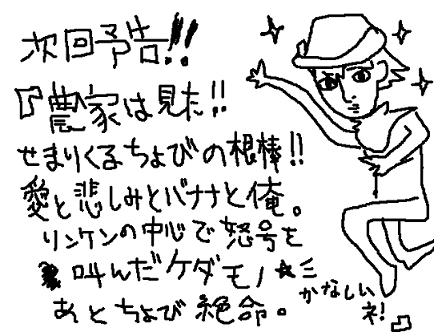 次回予告!!
『農家は見た!!
せまりくるちょびの根棒!!
愛と悲しみとバナナと俺。
リンケンの中心で怒号を
叫んだケダモノ☆ミ
あとちょび絶命。
かなしい
ネ!』